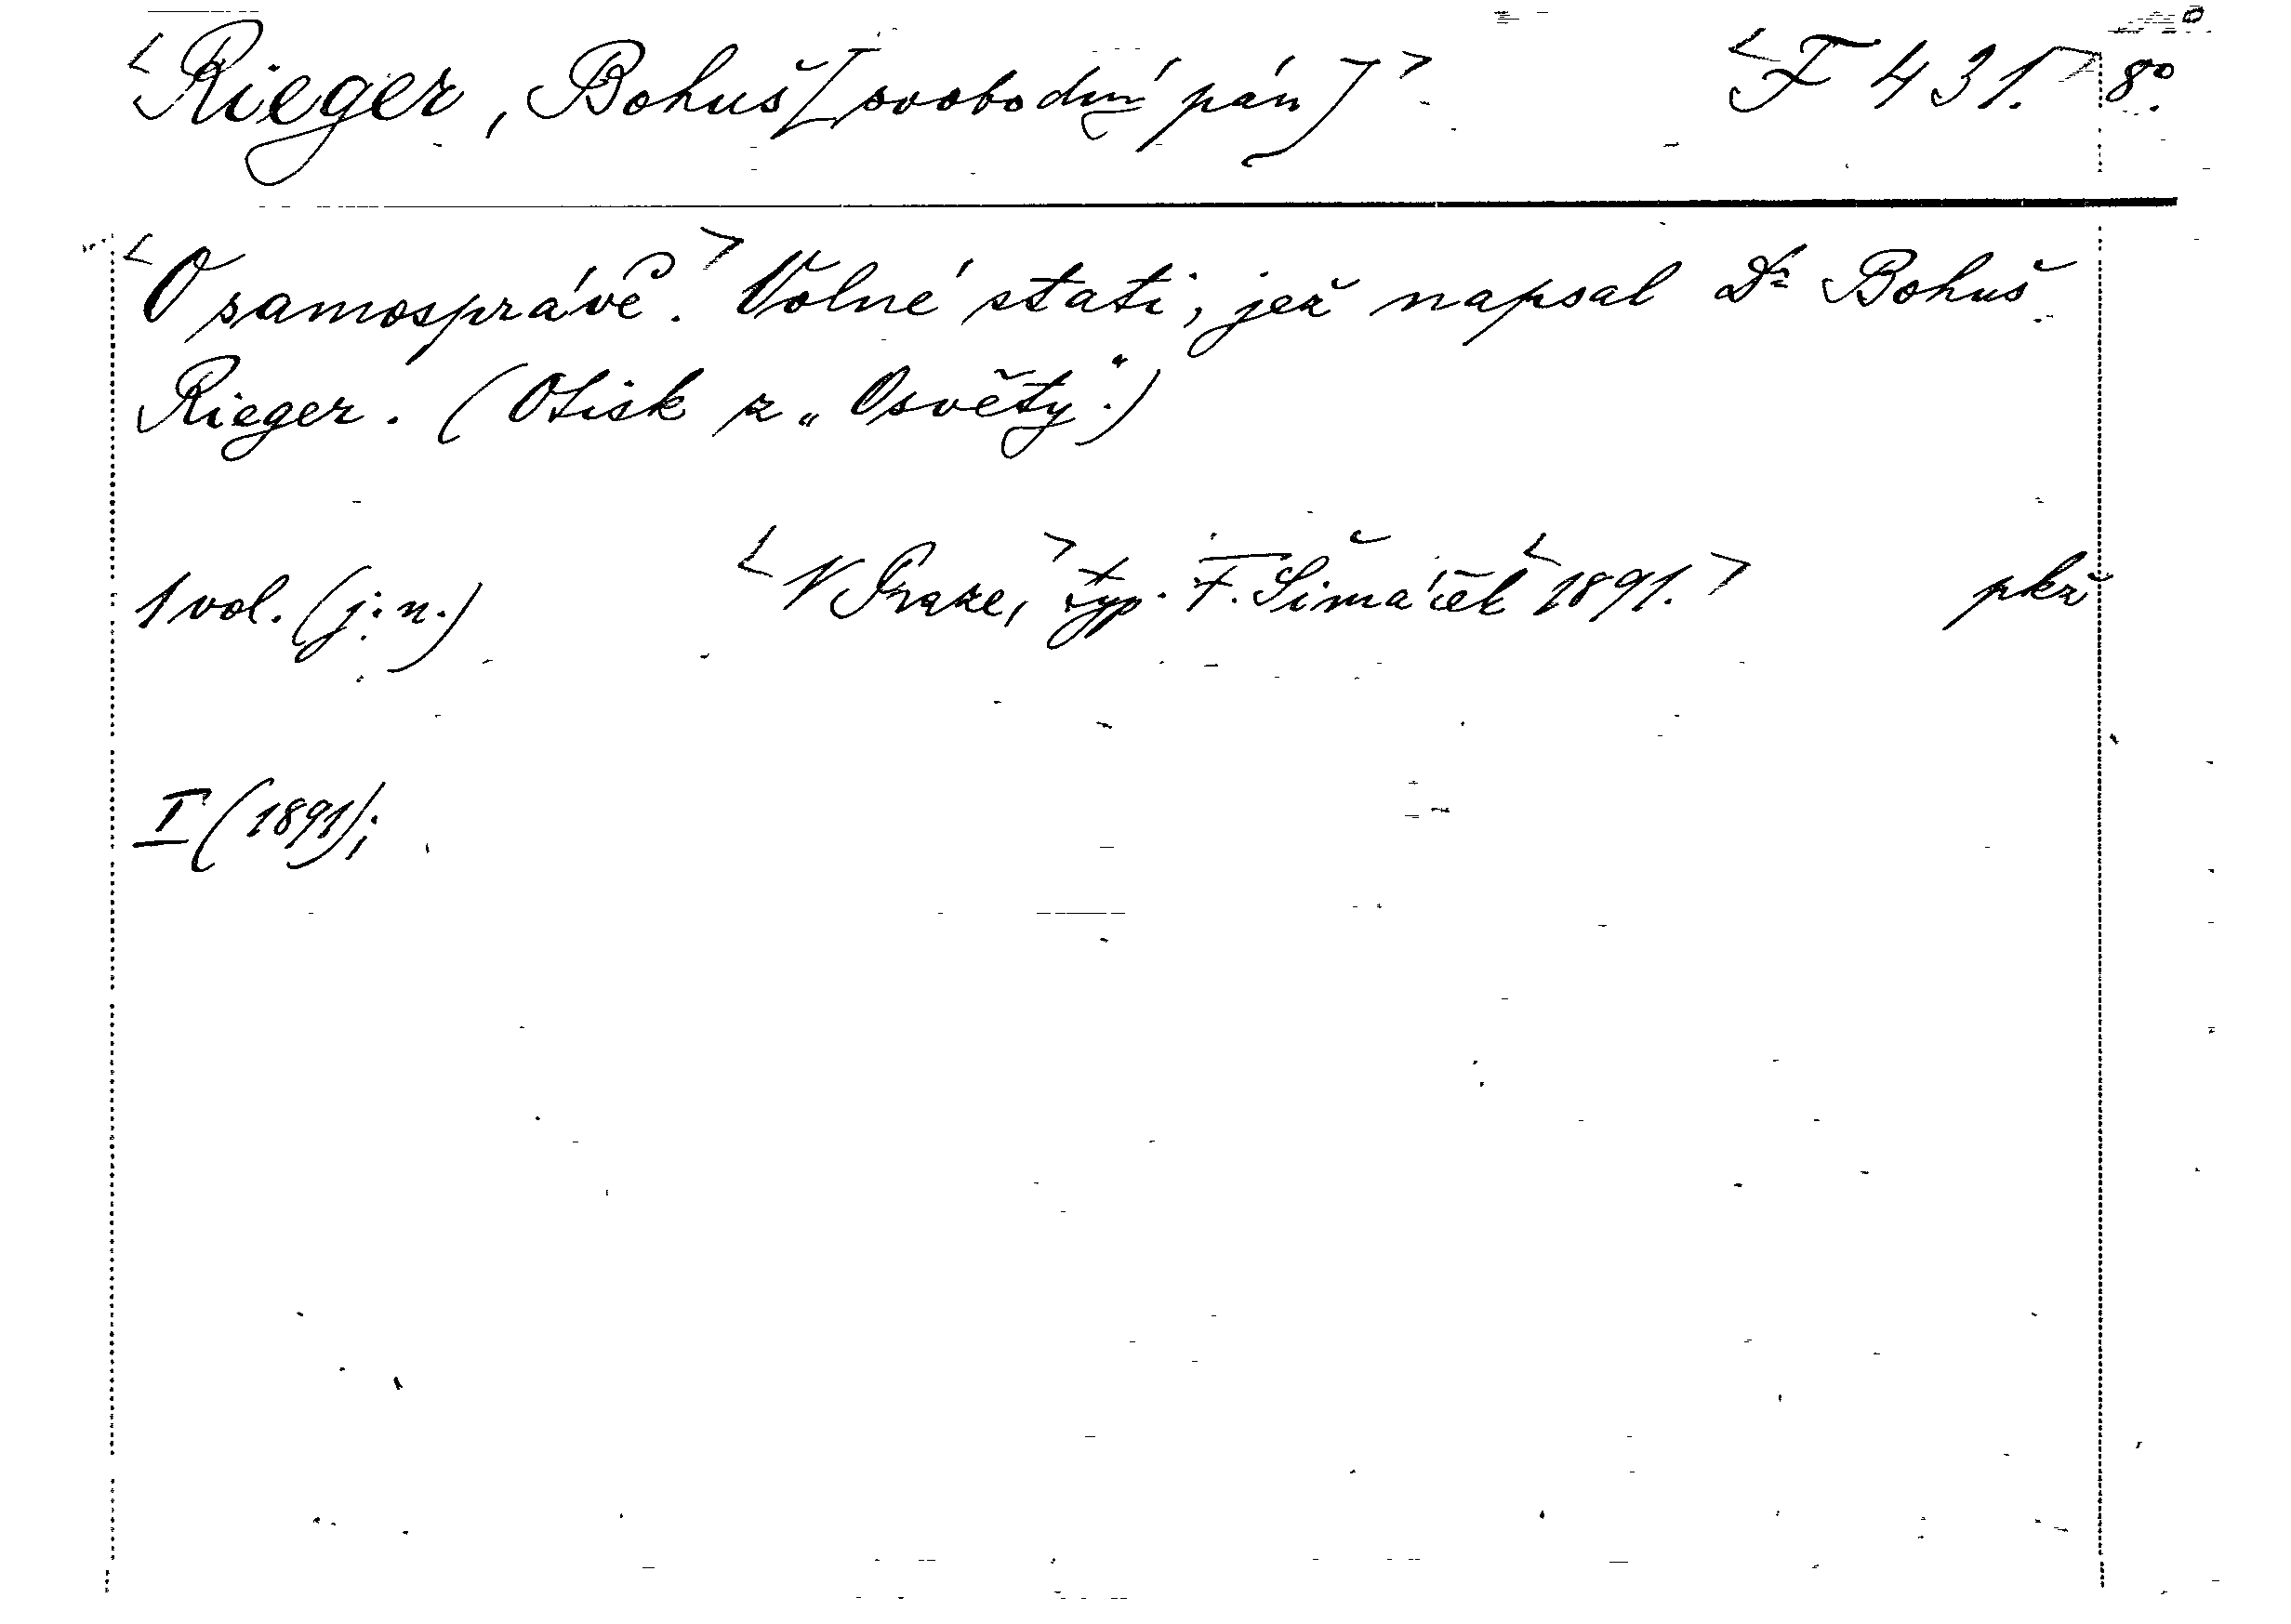 <Rieger, Bohuš [svobodný pán]> <F 431.> 8°.
<O samosprávě.> Volné stati, jež napsal Dr Bohuš
Rieger. (Otisk z „Osvěty“.)
1 vol. (j. n.) <V Praze,> typ. F. Šimáček <1891.> pkř
I (1891);